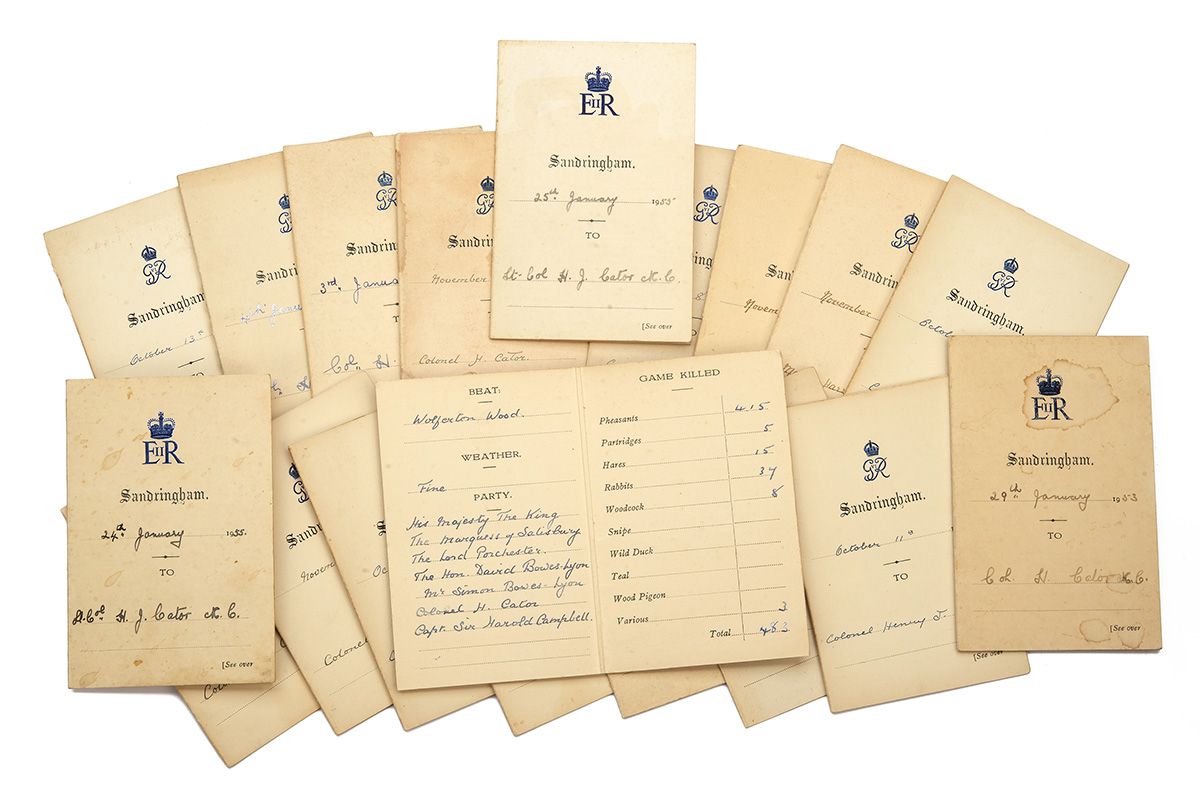 EIIR
Sandringham.
25th January 1955
TO
Lt-Col H. J. Cator M.C.
[See over
GVIR
Sandringham.
October 13th
TO
GVIR
Sandringham
4th
GVIR
Sandringham
3rd. January
Col. H.
GVIR
Sandringham
November
Colonel H. Cator.
GVIR
Sandringham
November
GVIR
Sandringham
November
GVIR
Sandringham.
October
EIIR
Sandringham.
24th January 1955.
TO
Lt-Col H. J. Cator M.C.
[See over
Sandringham
November
Colonel
BEAT:
Wolferton Wood.
WEATHER.
Fine
PARTY.
His Majesty The King
The Marquess of Salisbury
The Lord Porchester.
The Hon. David Bowes-Lyon
Mr Simon Bowes-Lyon
Colonel H. Cator
Capt. Sir Harold Campbell.
GAME KILLED
Pheasants 415
Partridges 5
Hares 15
Rabbits 37
Woodcock 8
Snipe
Wild Duck
Teal
Wood Pigeon
Various 3
Total 483
GVIR
Sandringham.
October 11th
TO
Colonel Henry J.
[See over
EIIR
Sandringham.
29th January 1953
TO
Col. H. Cator M.C.
[See over